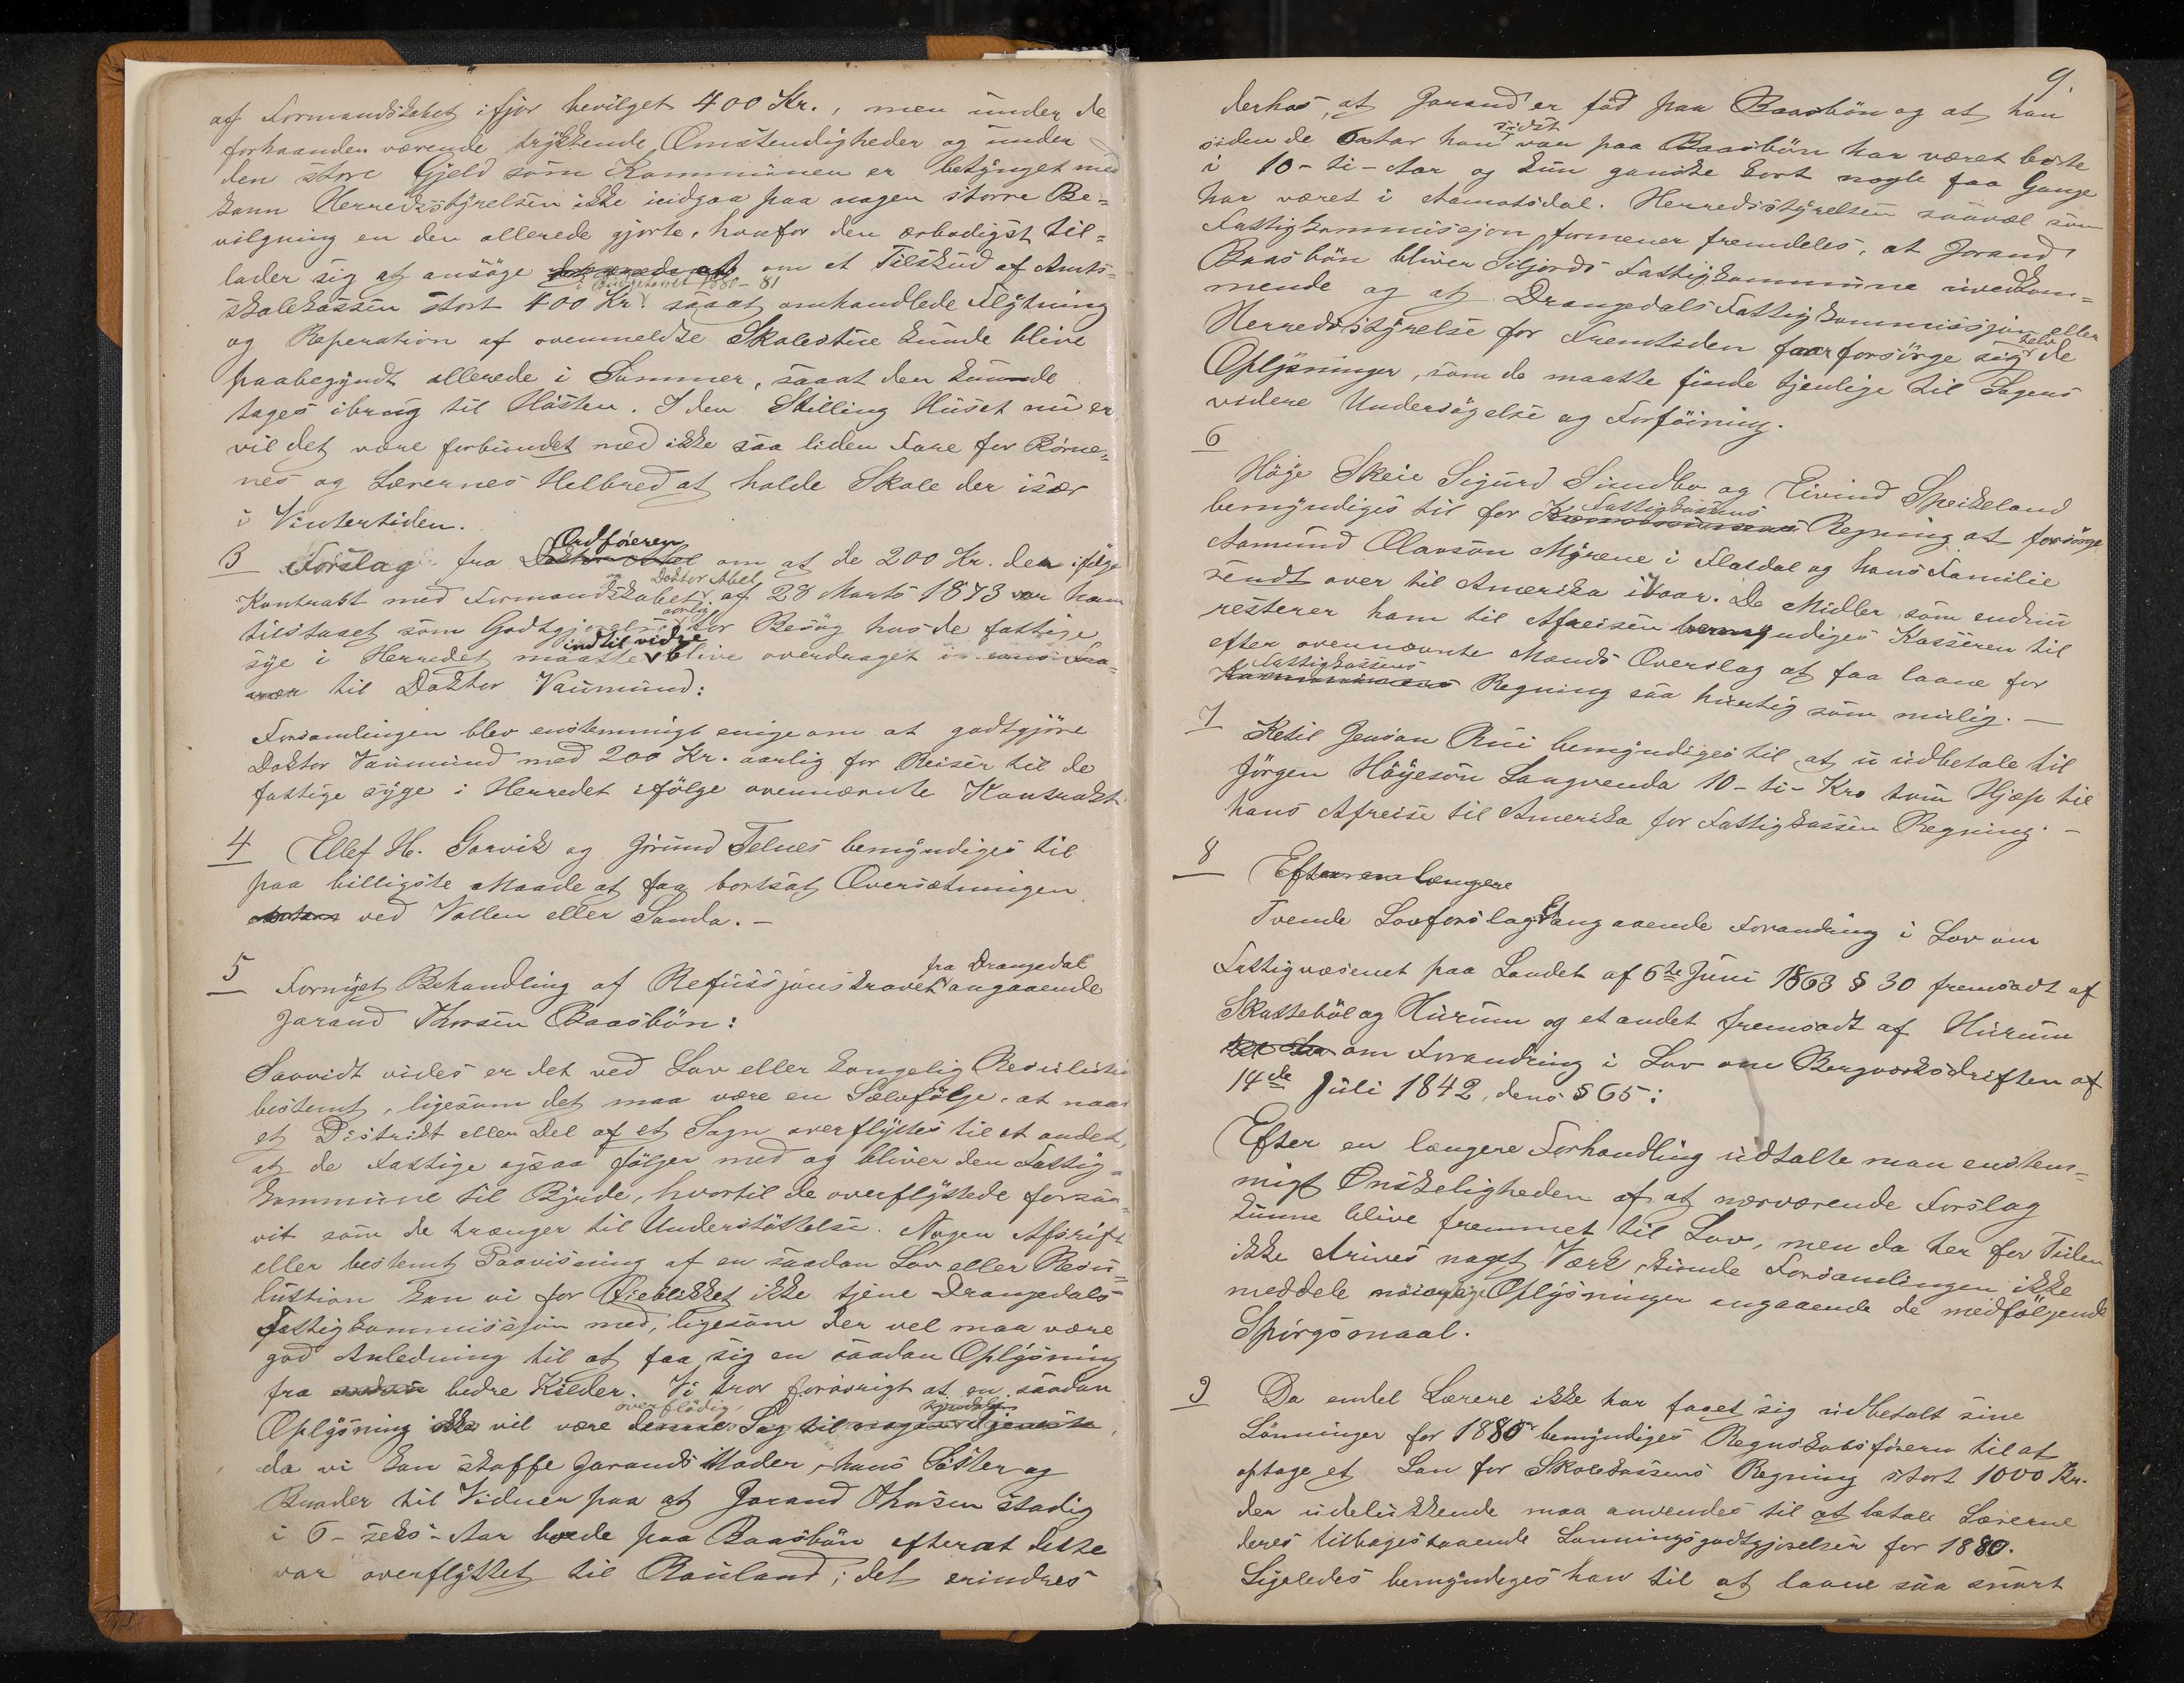 af Formandskabet ifjor bevilget 400 Kr., men under de
forhaanden værende trykkende Omstendigheder og under
den store Gjeld som Kommunen er betynget med
kann Herredsstyrelsen ikke indgaa paa nogen større Be=
vilgning en den allerede gjorte, hvorfor den ærbødigst til=
lader sig at ansøge om et Tilskud af Amts=
i Budgetaaret 1880-81
skolekassen stort 400 Kr. saaat omhandlede Flytning
og Reperation af ovenmeldte Skolestue kunde blive
paabegyndt allerede i Sommer, saaat den kunde
tages ibrug til Høsten. I den Stilling Huset nu er
vil det være forbundet med ikke saa liden Fare for Børne=
nes og Lærernes Helbred at holde Skole der især
i Vintertiden.
Ordføreren
3 Forslag fra Doktor Abel om at de 200 Kr. den ifølge
Doktor Abel
Kontrakt med Formandskabet af 28 Marts 1873 var ham
aarlig
tilstaaet som Godtgjørelse for Besøg hos de fattige
indtil vidre
syge i Herredet maatte blive overdraget
til Doktor Vaumund:
Forsamlingen blev enstemmigt enige om at godtgjøre
Doktor Vaumund med 200 Kr. aarlig for Reiser til de
fattige syge i Herredet ifølge ovennævnte Kontrakt
4 Ellef H. Garvik og Jirund Telnes bemyndiges til
paa billigste Maade at faa bortsat Oversætningen
ved Vallen eller Sanda. –
fra Drangedal
5 Fornyet Behandling af Refussjonskravet angaaende
Jarand Thorsen Baasbøn:
Saavidt vides er det ved Lov eller kongelig Resolution
bestemt, ligesom det maa være en Selvfølge, at naar
et Distrikt eller Del af et Sogn overflyttes til et andet,
at de Fattige ogsaa følger med og bliver den Fattig=
kommune til Byrde, hvortil de overflyttede forsaa=
vit som de trænger til Understøttelse. Nogen Afsrift
eller bestemt Paavisning af en saadan Lov eller Reso=
lustion kan vi for Øieblikket ikke tjene Drangedals
Fattigkommissjon med, ligesom der vel maa være
god Anledning til at faa sig en saadan Oplysning
fra bedre Kilder. Vi tror forøvrigt at en saadan
overflødig,
Oplysning ikke vil være denne Sag til nogen tjeneste,
da vi kan skaffe Jarands Moder, hans Søster og
Broder til Vidner paa at Jarand Thorsen stadig
i 6- seks- Aar boede paa Baasbøn efterat dette
var overflyttet til Rauland; det erindres
9.
derhos, at Jarand er fød paa Baasbøn og at han
sidst
siden de 6 Aar han var paa Baasbøn har været borte
i 10- ti- Aar og kun ganske kort nogle faa Gange
har været i Aamotsdal. Herredsstyrelsen saavel som
Fattigkommissjon formener fremdeles, at Jarand
Baasbøn bliver Siljords Fattigkommune uvedkom=
mende og at Drangedals Fattigkommissjon eller
selv
Herredsstyrelse for Fremtiden faar forsørge sig de
Oplysninger, som de maatte finde tjenlige til Sagens
videre Undersøgelse og Forføining.
6
Høye Skeie Sigurd Sundbo og Eivind Speikeland
Fattigkassens
bemyndiges til for Kommunens Regning at forsørge
Aamund Olavson Myrene i Flatdal og hans Familie
sendt over til Amerika ivaar. De Midler som endnu
resterer ham til Afreisen bemyndiges Kasseren til
efter ovennævnte Mænds Overslag at faa laane for
Fattigkassens
Kommunens Regning saa hurtig som mulig. –
7 Ketil Jenson Rui bemyndiges til at udbetale til
Jørgen Høyeson Langvenda 10- ti- Kro som Hjælp til
hans Afreise til Amerika for Fattigkassen Regning. –
8 Efter en længere
Et
Tvende Lovforslag angaaende Forandring i Lov om
Fattigvæsenet paa Landet af 6te Juni 1863 § 30 fremsadt af
Skattebøl og Hurum og et andet fremsadt af Hurum
om Forandring i Lov om Bergverksdriften af
14de Juli 1842, dens § 65:
Efter en længere Forhandling udtalte man enstem=
migt Ønskeligheden af at nærværende Forslag
kunne blive fremmet til Lov, men da her for Tiden
ikke drives noget Værk, kunde Forsamlingen ikke
meddele nøiagtige Oplysninger angaaende de medfølgende
Spørgsmaal.
9 Da endel Lærere ikke har faaet sig udbetalt sine
Lønninger for 1880 bemyndiges Regnskabsføreren til at
optage et Lan for Skolekassens Regning stort 1000 Kr.
der udelukkende maa anvendes til at betale Lærerne
deres tilbagestaaende Lønningsgodtgjørelser for 1880.
Ligeledes bemyndiges han til at laane saa snart